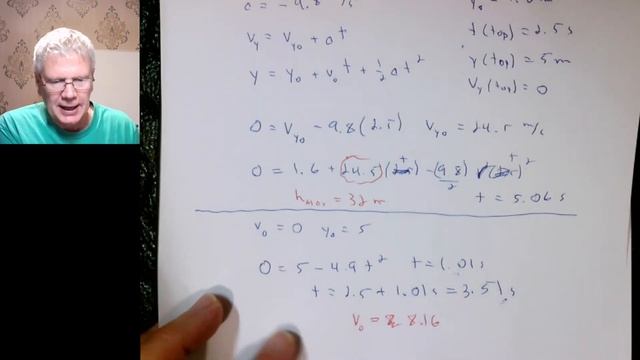 a = -9.8
t(top) = 2.5 s
v_y = v_y0 + at
y(top) = 5 m
y = y_0 + v_0 t + 1/2 at^2
v_y(top) = 0
0 = v_y0 - 9.8(2.5) v_y0 = 24.5 m/s
0 = 1.6 + 24.5(t) - (9.8)/2 (t)^2
h_max = 32 m
t = 5.06 s
v_0 = 0 y_0 = 5
0 = 5 - 4.9t^2 t = 1.01 s
t = 2.5 + 1.01 s = 3.51 s
v_0 = 8.16